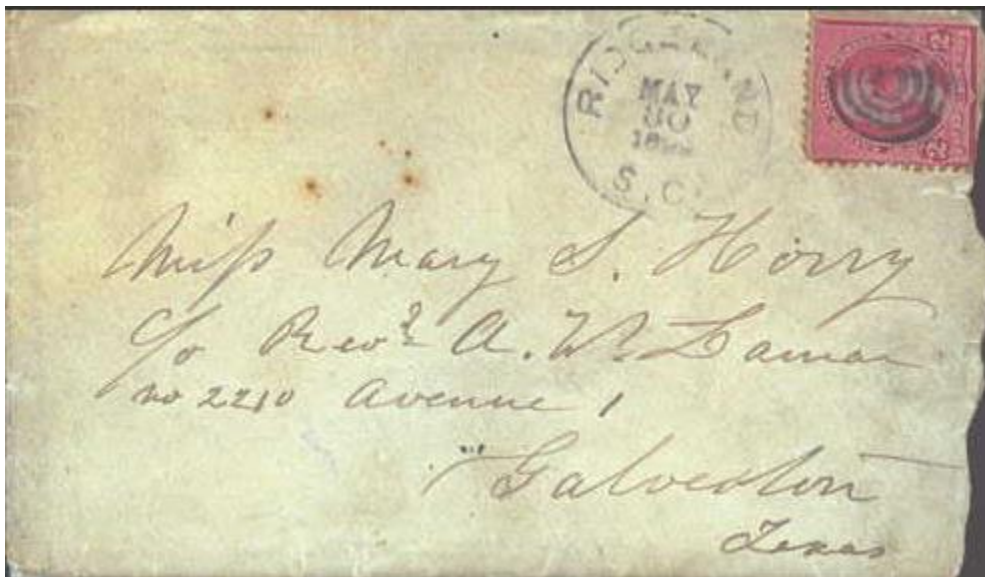 RIDGELAND
MAY
30
S.C.
2 2
Miss Mary S. Horry
c/o Revd A. W. Lamar
no 2210 Avenue I
Galveston
Texas